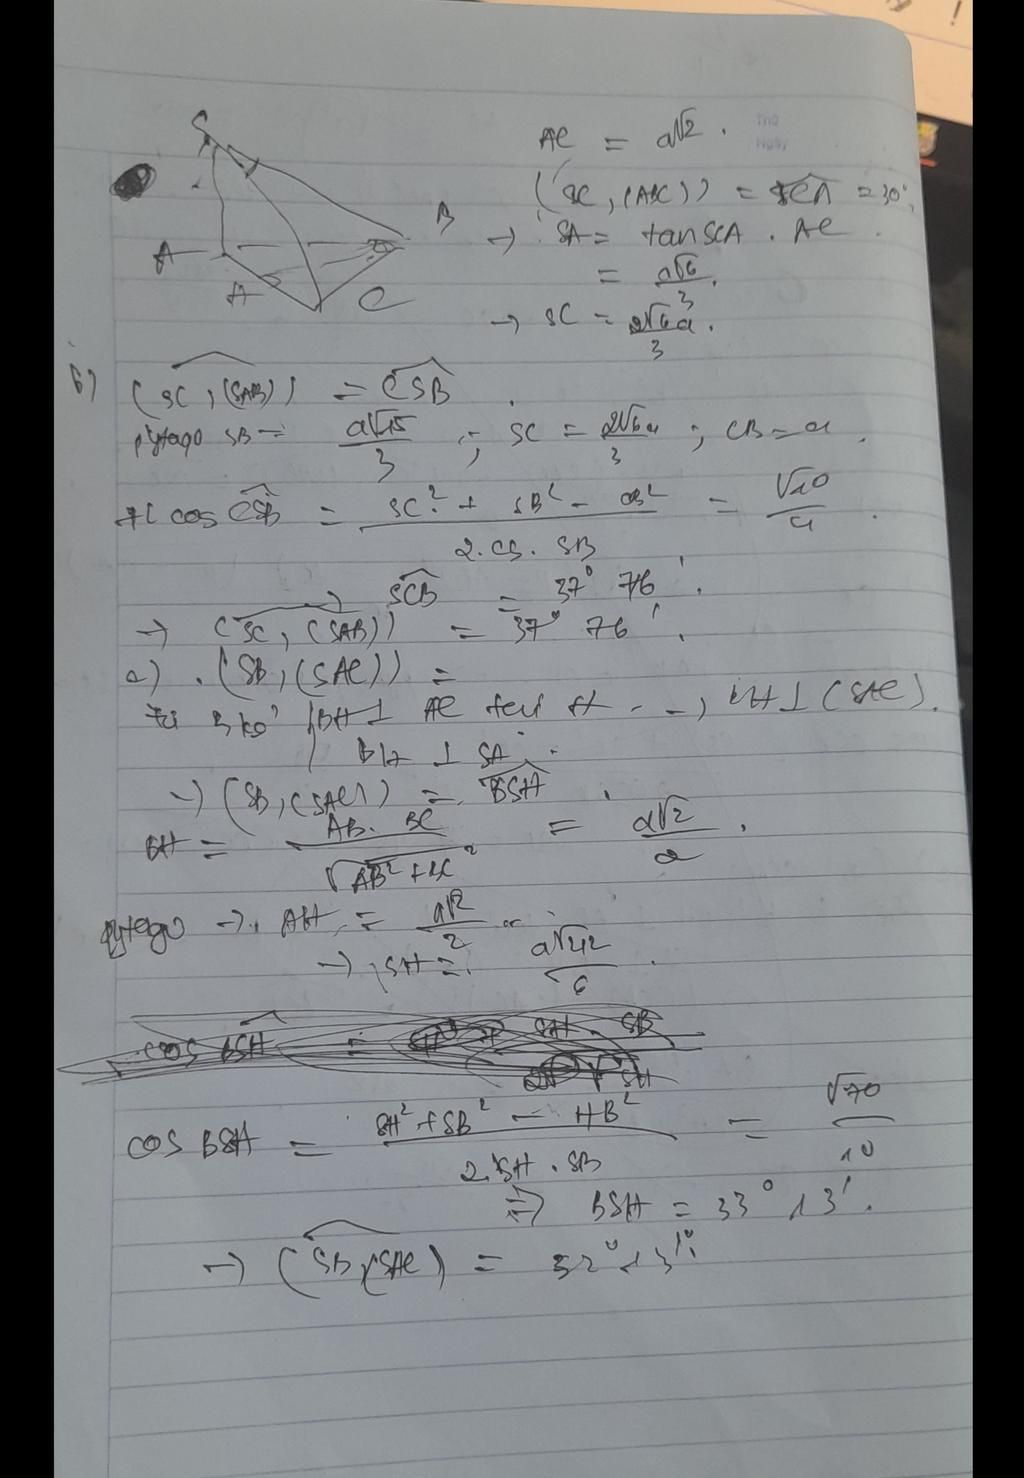 S
A
B
H
C
AC = a√2.
(SC, (ABC)) = SCA = 30°,
→ SA = tan SCA . AC.
= a√6/3.
→ SC = 2√6a/3.
b) (SC, (SAB)) = CSB.
pytago SB = a√15/3 ; SC = 2√6a/3 ; CB = a.
cos CSB = (SC² + SB² - CB²)/(2.CS.SB) = √10/4.
SCB = 37° 76'.
→ (SC, (SAB)) = 37° 76'.
c) . (SB, (SAC)) =
Từ B kẻ BH ⊥ AC tại H - -, BH ⊥ (SAC).
BH ⊥ SA.
→ (SB, (SAC)) = BSH.
BH = (AB. BC)/√(AB² + BC²) = a√2/2.
pytago → AH = a√2/2
→ SH = a√42/6.
cos BSH = (SH² + SB² - HB²)/(2.SH.SB) = √70/10
⇒ BSH = 33° 13'.
→ (SB, (SAC) = 32° 13'.